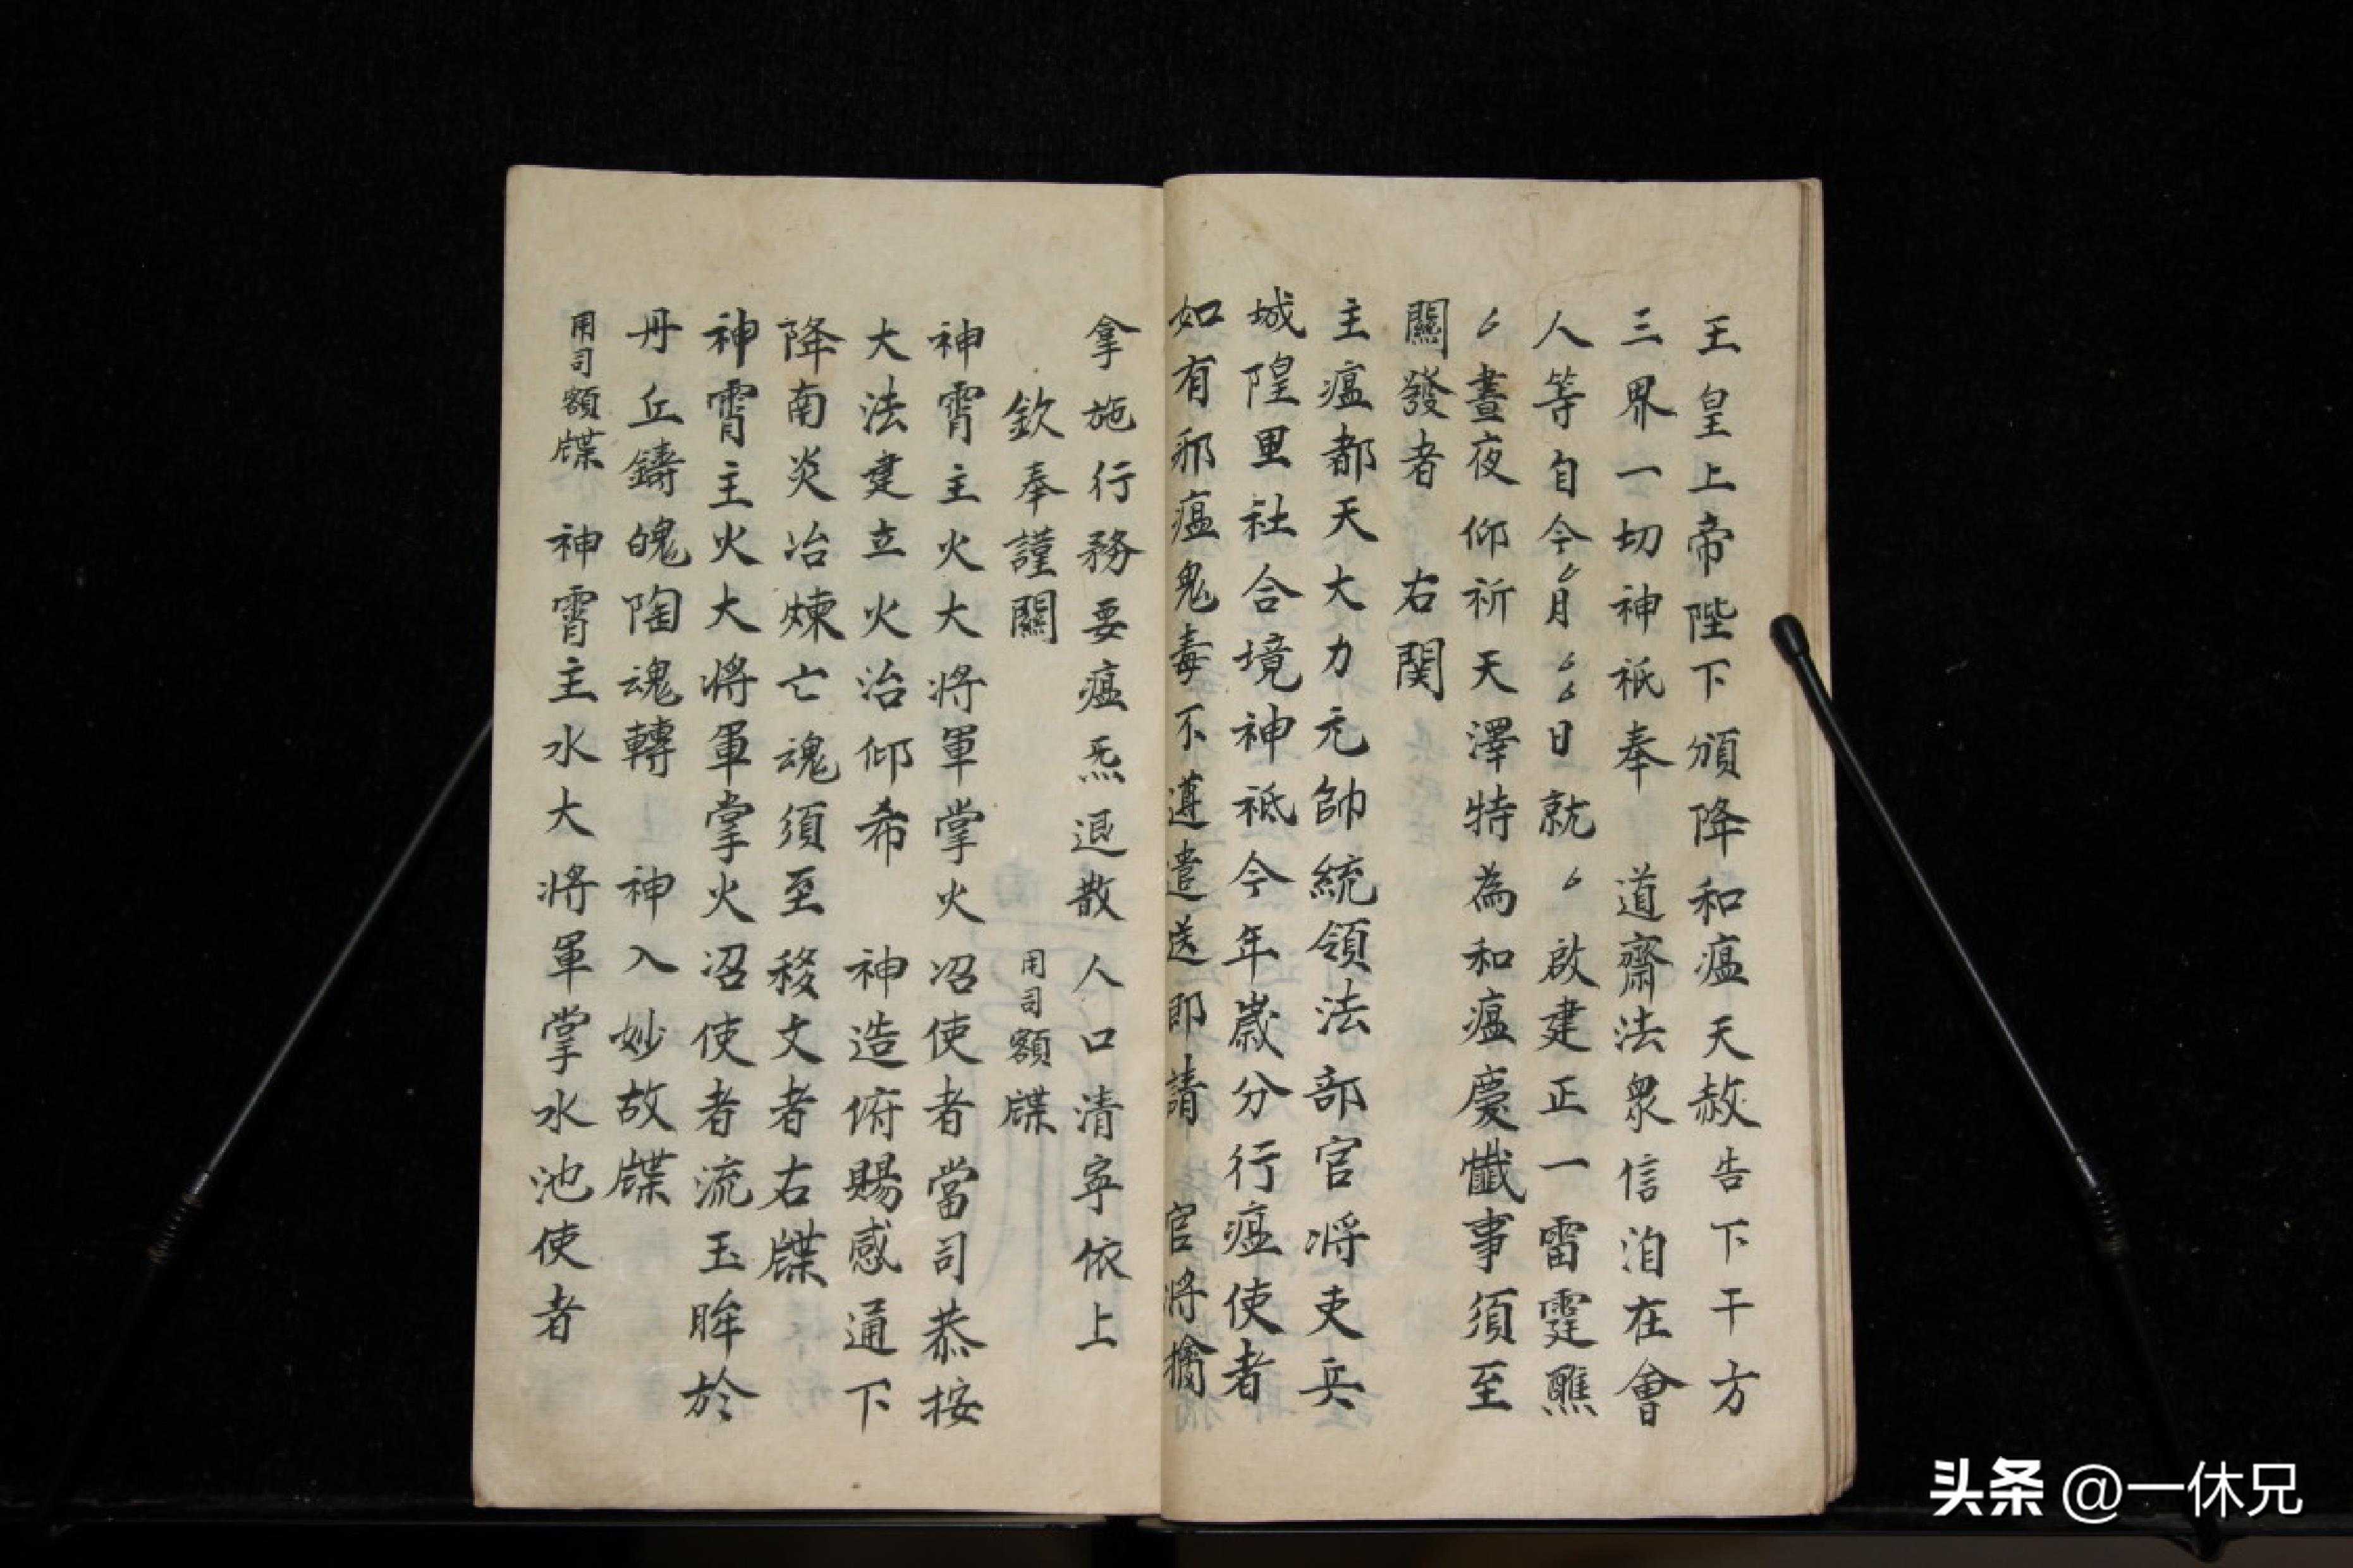 王皇上帝陛下頒降和瘟天赦告下干方
三界一切神祇奉　道齋法眾信洎在會
人等自今厶月厶厶日就厶啟建正一雷霆醮
厶晝夜仰祈天澤特為和瘟慶懺事須至
關發者　右関
主瘟都天大力元帥統領法部官将吏兵
城隍里社合境神祗今年歲分行瘟使者
如有邪瘟鬼毒不遵遣送即請　官将擒
拿施行務要瘟炁退散人口清寕依上
欽奉謹關　用司額牒
神霄主火大将軍掌火沼使者當司恭按
大法建立火治仰希　神造俯賜感通下
降南炎冶煉亡魂須至移文者右牒
神霄主火大将軍掌火沼使者流玉眸於
丹丘鑄魄陶魂轉　神入妙故牒
用司額牒　神霄主水大将軍掌水池使者
头条 @一休兄